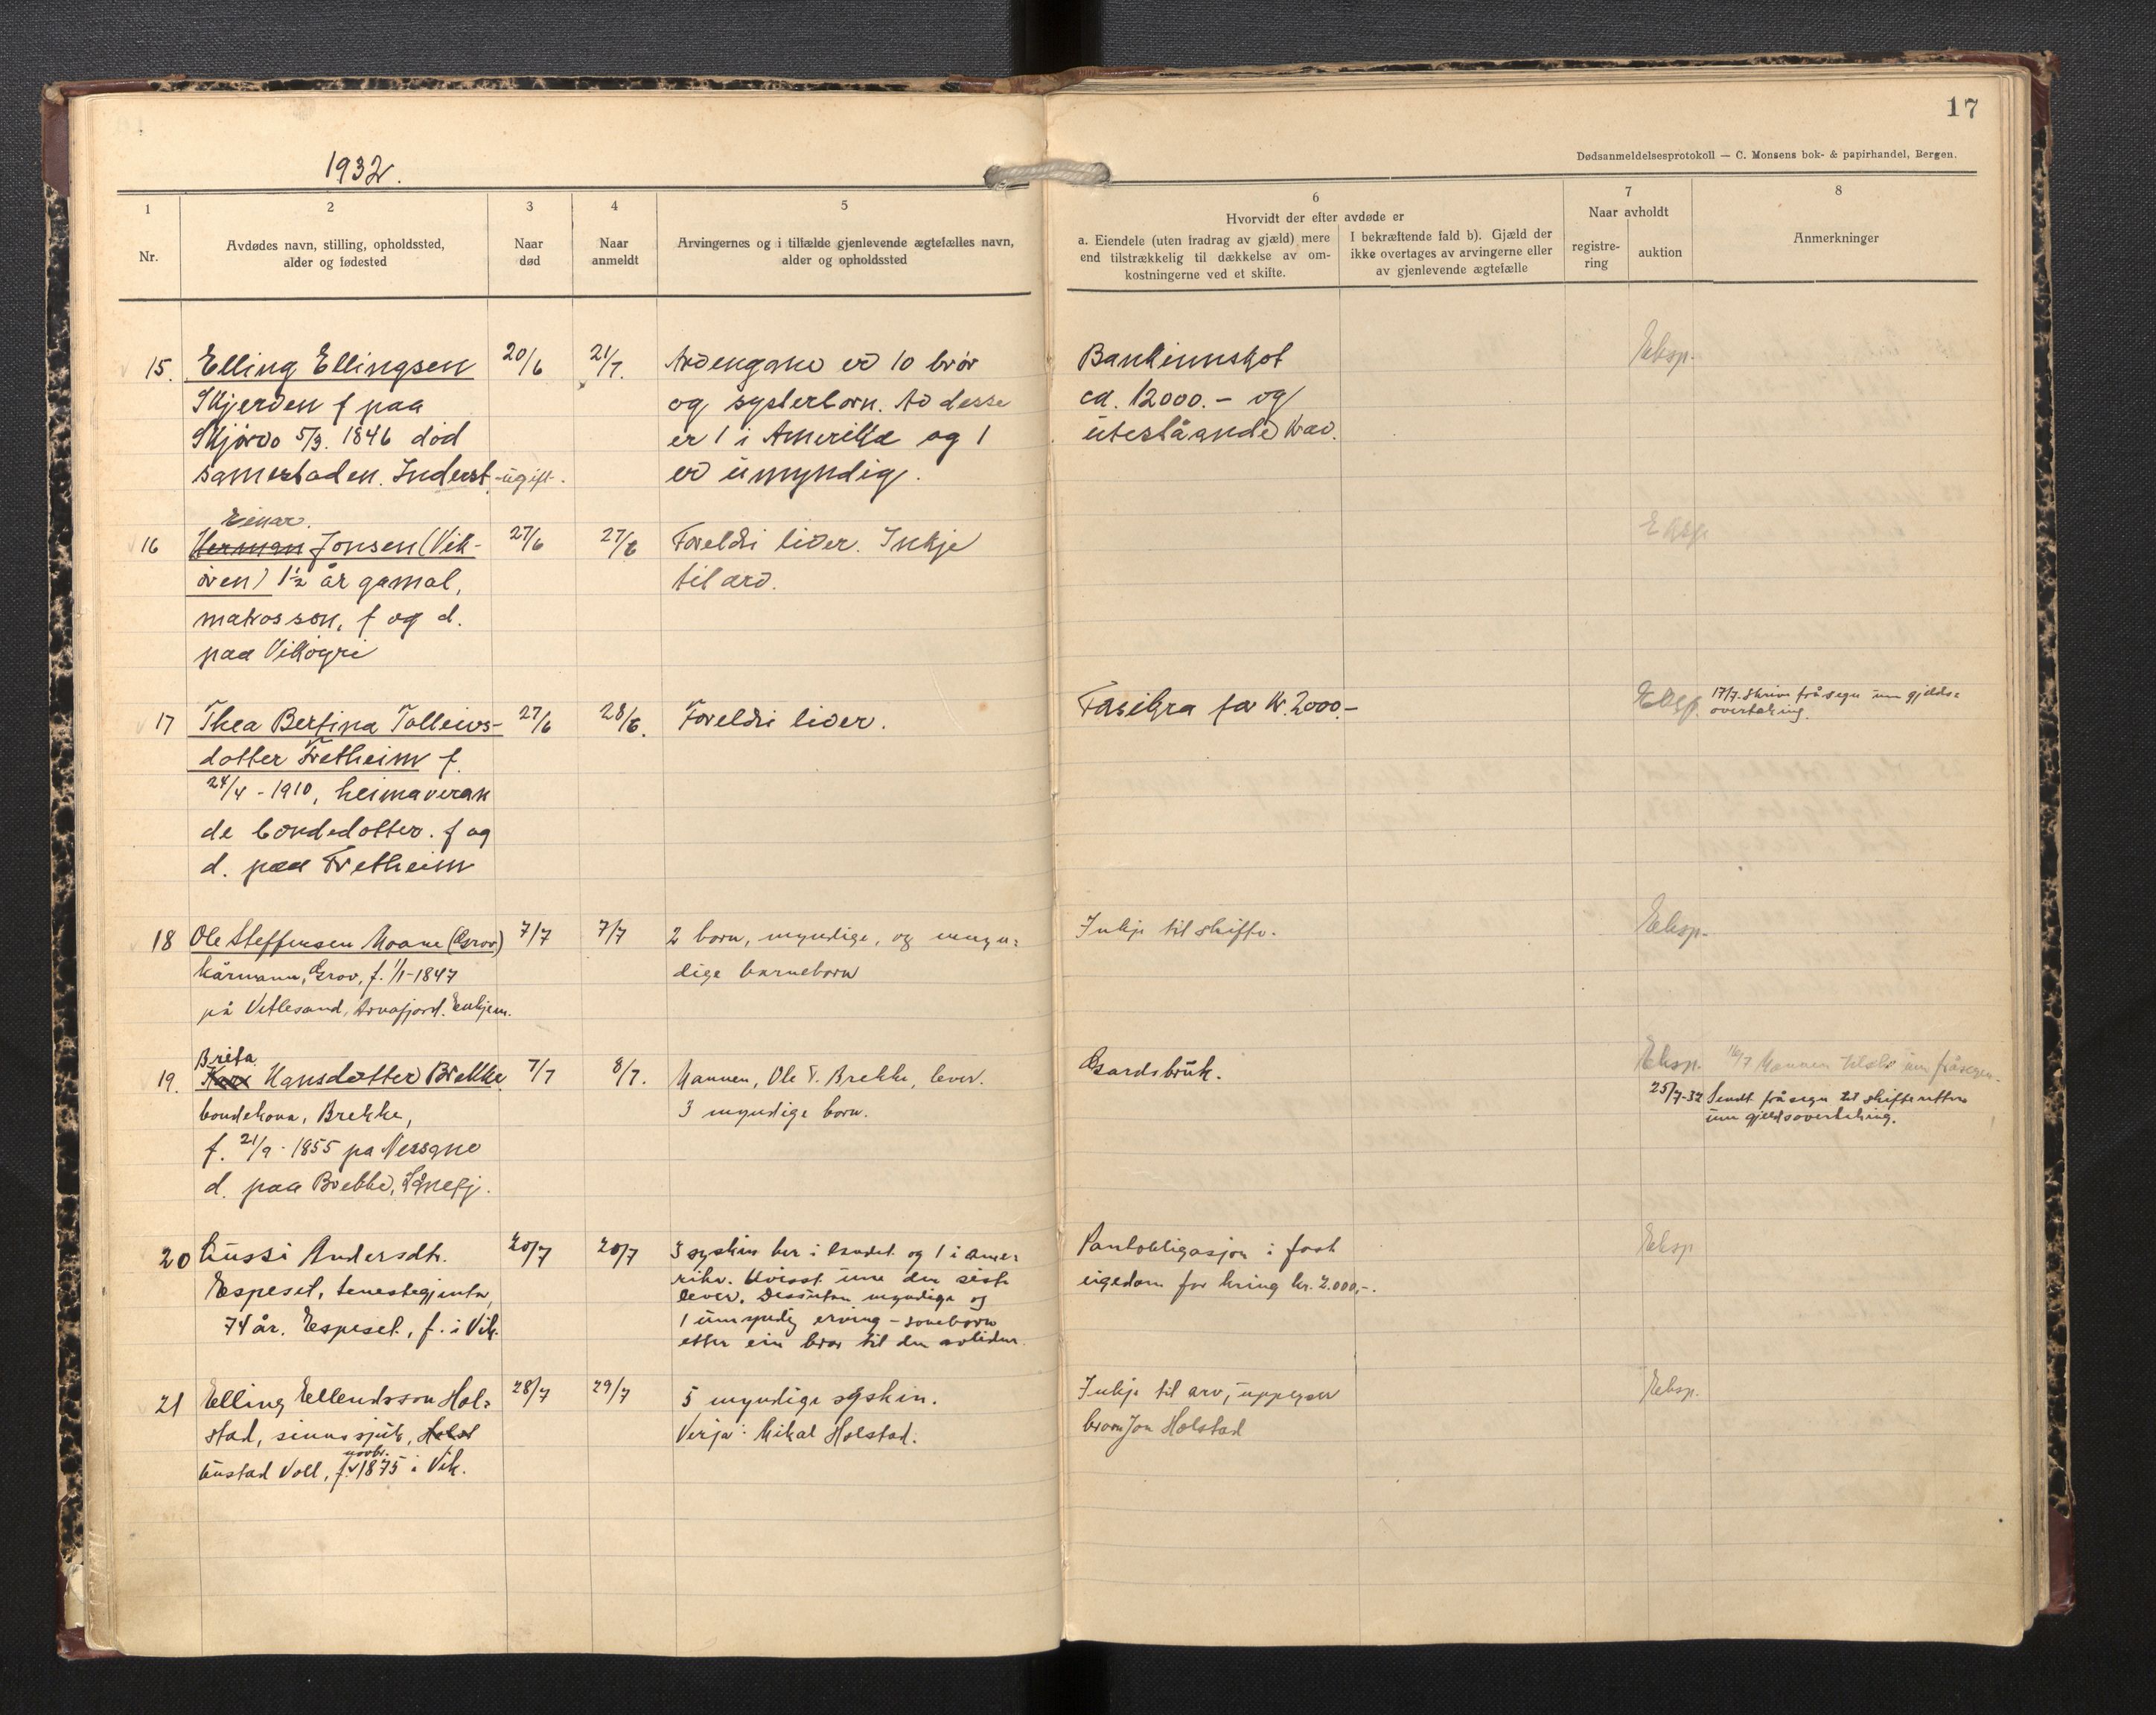 17
Dødsanmeldelsesprotokoll — C. Monsens bok- & papirhandel, Bergen.
1932.
1
Nr.
2
Avdødes navn, stilling, opholdssted,
alder og fødested
3
Naar
død
4
Naar
anmeldt
5
Arvingernes og i tilfælde gjenlevende ægtefælles navn,
alder og opholdssted
6
Hvorvidt der efter avdøde er
a. Eiendele (uten fradrag av gjæld) mere
end tilstrækkelig til dækkelse av om-
kostningerne ved et skifte.
I bekræftende fald b). Gjæld der
ikke overtages av arvingerne eller
av gjenlevende ægtefælle
7
Naar avholdt
registre-
ring
auktion
8
Anmerkninger
15. Elling Ellingsen
Skjerven f paa
Skjørvo 5/3. 1846 død
samestaden. Inderst -ugift-.
20/6
21/7.
Arvengane er 10 bror
og systerborn. Av desse
er 1 i Amerika og 1
er umyndig.
Bankinnskot
ca. 12000.- og
uteståande krav.
Eksp.
Einar.
16 Herman Jonsen (Vik-
øren) 1½ år gamal,
matrosson, f og d.
paa Vikøyri
27/6
27/6
Foreldri liver. Inkje
til arv.
Eksp
17 Thea Bertina Tolleivs-
dotter Fretheim f.
24/4 - 1910, heimaveran
de bondedotter. f og
d. paa Fretheim
27/6
28/6.
Foreldri liver.
Trasikra for kr. 2000.-
Eksp.
17/7. Skrive fråsegn um gjelds=
overtaking.
18 Ole Steffensen Moane (Grov)
kårmann, Grov, f. 1/1-1847
på Vetlesand, Arnafjord. Enkjem.
7/7
7/7
2 born, myndige, og umyn=
dige barneborn
Inkje til skifte.
Eksp.
Brita
19. Kari Hansdotter Brekke
bondekona, Brekke,
f. 21/9 - 1855 pa Nessane
d. paa Brekke, Lånefj.
7/7
8/7.
Mannen, Ole T. Brekke, lever.
3 myndige born.
Gardsbruk.
Eksp.
16/7 Mannen um fråsegn.
25/7-32 Sendt fråsegn til skifteretten
um gjeldsovertaking.
20 Gussi Andersdtr.
Espeset, tenestegjenta,
74 år. Espeset, f. i Vik.
20/7
20/7
3 syskin her i landet og 1 i Ame=
rika. Uvisst um den siste
lever. Dessutan myndige og
1 umyndig erving - soneborn
etter ein bror til den avlidne.
Pantobligasjon i fast
eigedom for kring kr. 2.000,-.
Eksp
21 Elling Ellendsson Hol=
stad, sinnssjuk, Holst
novbr.
bustad Voll, f. 1875 i Vik.
28/7
29/7
5 myndige syskin.
Verja: Mikal Holstad.
Inkje til arv, uppgjev
broren Jon Holstad
Eksp.